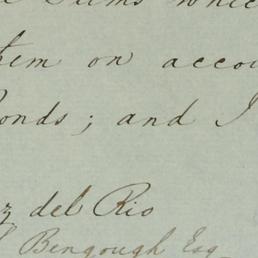 Sums which
them on accou
onds; and I
z del Rio
Bengough Esq